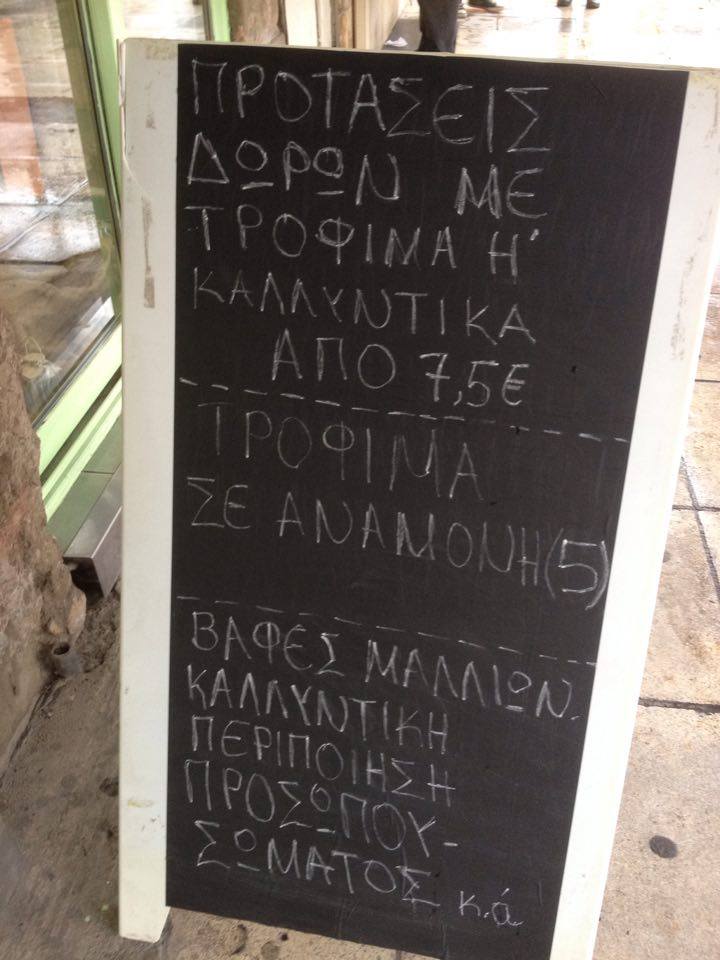 ΠΡΟΤΑΣΕΙΣ
ΔΩΡΩΝ ΜΕ
ΤΡΟΦΙΜΑ Η'
ΚΑΛΛΥΝΤΙΚΑ
ΑΠΟ 7,5€
ΤΡΟΦΙΜΑ
ΣΕ ΑΝΑΜΟΝΗ(5)
ΒΑΦΕΣ ΜΑΛΛΙΩΝ.
ΚΑΛΛΥΝΤΙΚΗ
ΠΕΡΙΠΟΙΗΣΗ
ΠΡΟΣΩΠΟΥ-
ΣΩΜΑΤΟΣ κ.ά